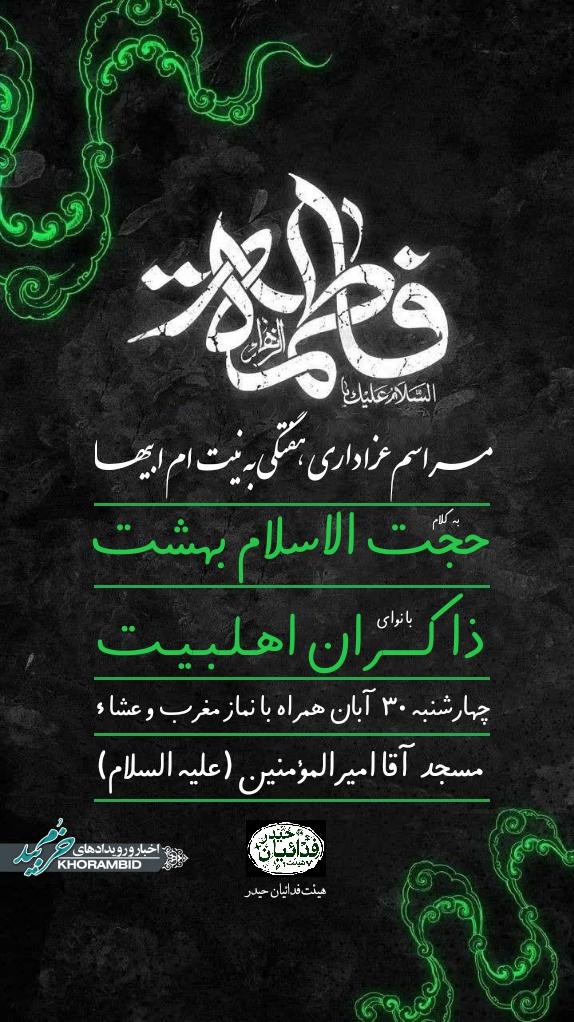 فاطمة
الزهراء
السلام علیك یا
مراسم عزاداری هفتگی به نیت ام ابیها
به کلام
حجت الاسلام بهشت
با نوای
ذاکران اهلبیت
چهارشنبه ۳۰ آبان همراه با نماز مغرب و عشاء
مسجد آقا امیرالمؤمنین (علیه السلام)
حیدر
فدائیان
هیئت
هیئت فدائیان حیدر
اخبار و رویدادهای خرمبید
KHORAMBID